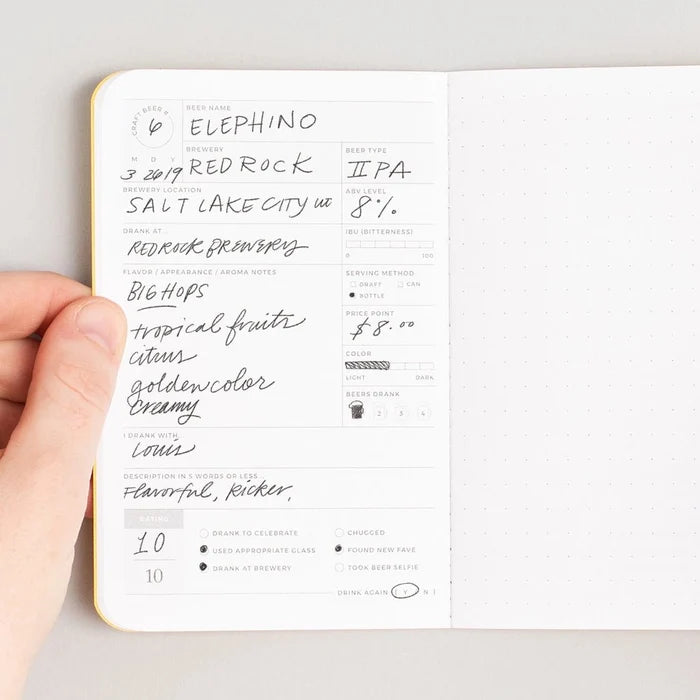 CRAFT BEER #
6
BEER NAME
ELEPHINO
M D Y
3 2019
BREWERY
RED ROCK
BEER TYPE
IIPA
BREWERY LOCATION
SALT LAKE CITY
ABV LEVEL
8%
DRANK AT...
RED ROCK BREWERY
IBU (BITTERNESS)
0 100
FLAVOR / APPEARANCE / AROMA NOTES
BIG HOPS
tropical fruits
citrus
golden color
creamy
SERVING METHOD
DRAFT CAN
BOTTLE
PRICE POINT
$8.00
COLOR
LIGHT DARK
BEERS DRANK
2 3 4
I DRANK WITH
Louis
DESCRIPTION IN 5 WORDS OR LESS...
Flavorful, kicker,
RATING
10
10
DRANK TO CELEBRATE
CHUGGED
USED APPROPRIATE GLASS
FOUND NEW FAVE
DRANK AT BREWERY
TOOK BEER SELFIE
DRINK AGAIN [ Y / N ]